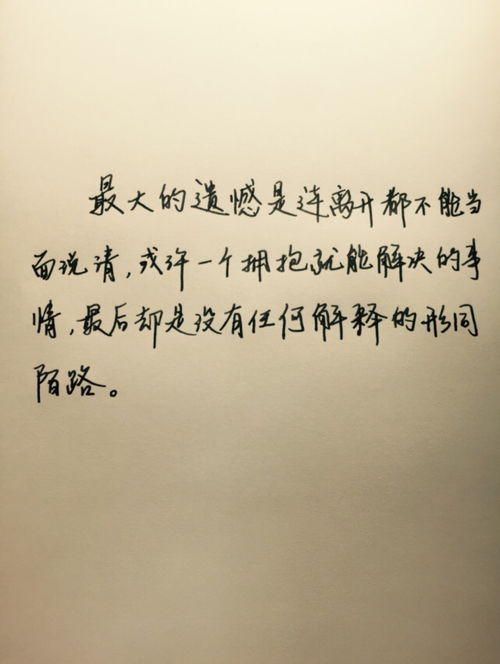 最大的遗憾是连离开都不能当
面说清,或许一个拥抱就能解决的事
情,最后却是没有任何解释的形同
陌路。